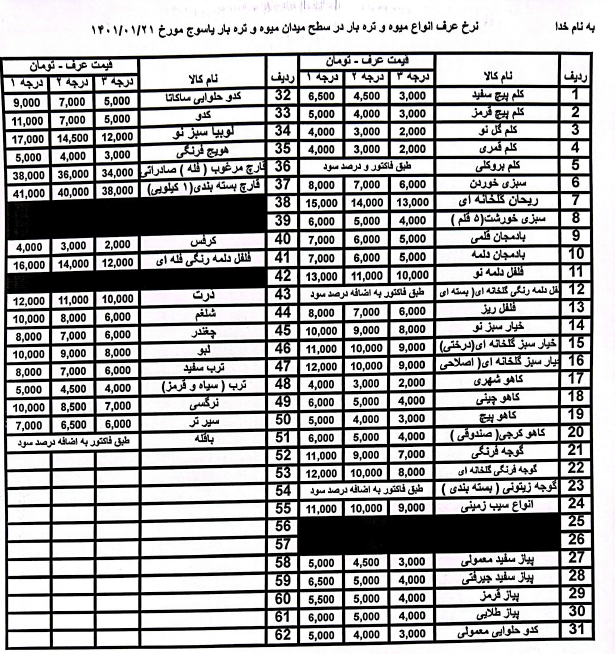 به نام خدا
نرخ عرف انواع میوه و تره بار در سطح میدان میوه و تره بار یاسوج مورخ ۱۴۰۱/۰۱/۲۱
ردیف نام کالا قیمت عرف - تومان
درجه ۳ درجه ۲ درجه ۱
1 کلم پیچ سفید 3,000 4,500 6,500
2 کلم پیچ قرمز 3,000 4,000 5,000
3 کلم گل نو 2,000 3,000 4,000
4 کلم قمری 2,000 3,000 4,000
5 کلم بروکلی طبق فاکتور و درصد سود
6 سبزی خوردن 6,000 7,000 8,000
7 ریحان گلخانه ای 13,000 14,000 15,000
8 سبزی خورشت(۵ قلم ) 4,000 5,000 6,000
9 بادمجان قلمی 5,000 6,000 7,000
10 بادمجان دلمه 5,000 6,000 7,000
11 فلفل دلمه نو 10,000 11,000 13,000
12 فل دلمه رنگی گلخانه ای( بسته ای طبق فاکتور به اضافه درصد سود
13 فلفل ریز 6,000 7,000 8,000
14 خیار سبز نو 8,000 9,000 10,000
15 خیار سبز گلخانه ای(درختی) 9,000 10,000 11,000
16 خیار سبز گلخانه ای( اصلاحی 9,000 10,000 12,000
17 کاهو شهری 2,000 3,000 4,000
18 کاهو چینی 4,000 5,000 6,000
19 کاهو پیچ 3,000 4,000 5,000
20 کاهو کرجی( صندوقی ) 4,000 5,000 6,000
21 گوجه فرنگی 7,000 9,000 11,000
22 گوجه فرنگی گلخانه ای 8,000 10,000 12,000
23 گوجه زیتونی ( بسته بندی ) طبق فاکتور به اضافه درصد سود
24 انواع سیب زمینی 9,000 10,000 11,000
25
26
27 پیاز سفید معمولی 3,000 4,500 5,000
28 پیاز سفید جیرفتی 4,000 5,000 6,500
29 پیاز قرمز 4,000 5,000 5,500
30 پیاز طلایی 4,000 5,000 6,000
31 کدو حلوایی معمولی 3,000 4,000 5,000
ردیف نام کالا قیمت عرف - تومان
درجه ۳ درجه ۲ درجه ۱
32 کدو حلوایی ساکاتا 5,000 7,000 9,000
33 کدو 5,000 7,000 11,000
34 لوبیا سبز نو 12,000 14,500 17,000
35 هویج فرنگی 3,000 4,000 5,000
36 قارچ مرغوب ( فله ) صادراتی 34,000 36,000 38,000
37 قارچ بسته بندی(۱ کیلویی) 38,000 40,000 41,000
38
39
40 کرفس 2,000 3,000 4,000
41 فلفل دلمه رنگی فله ای 12,000 14,000 16,000
42
43 ذرت 10,000 11,000 12,000
44 شلغم 6,000 8,000 10,000
45 چغندر 6,000 7,000 8,000
46 لبو 8,000 9,000 10,000
47 ترب سفید 6,000 7,000 8,000
48 ترب ( سیاه و قرمز) 4,000 4,500 5,000
49 نرگسی 7,000 8,500 10,000
50 سیر تر 6,000 6,500 7,000
51 باقله طبق فاکتور به اضافه درصد سود
52
53
54
55
56
57
58
59
60
61
62